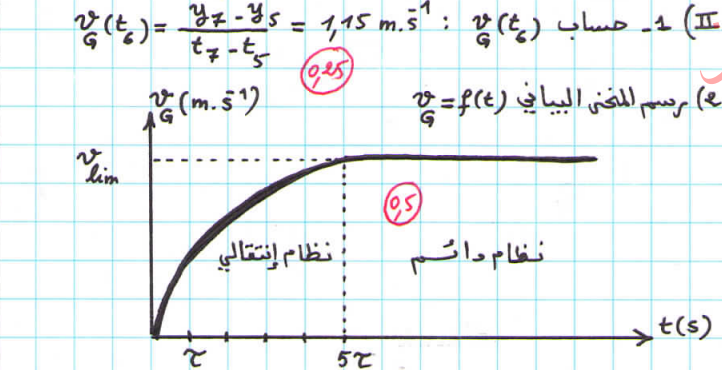 II) 1- حساب v_G(t₆) : v_G(t₆) = (y₇ - y₅) / (t₇ - t₅) = 1,15 m.s⁻¹
0,25
2) رسم المنحنى البياني v_G = f(t)
v_G (m.s⁻¹)
v_lim
0,5
نظام إنتقالي نظام دائم
τ 5τ t(s)